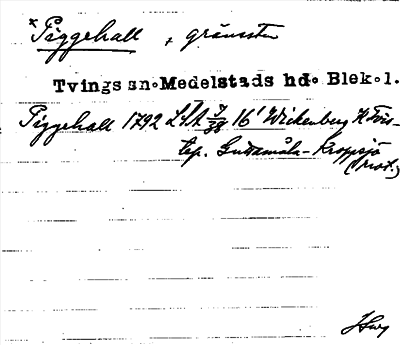 *Piggehall, gränssten
Tvings sn. Medelstads hd. Blek.l.
Piggehall 1792 LSA 16' Wickenberg
Guttamåla-Kroppsjö
(prot.)